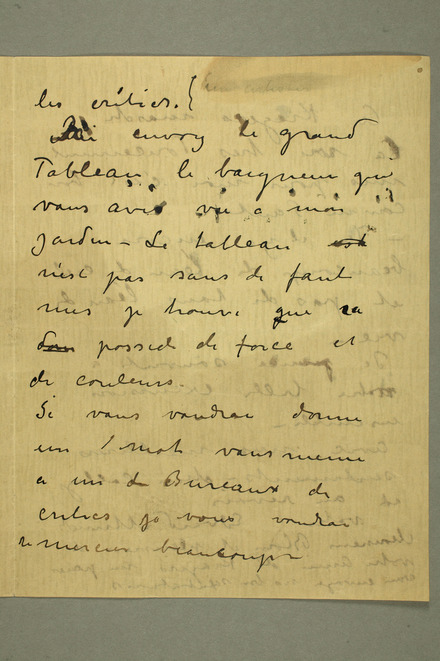 les critics.
envoy le grand
Tableau le baigneur qui
vous avis vue a mon
Jardin – Le tableau est
n'est pas sans de faut
mes je trouve que sa
dom possed de force et
de couleurs.
Si vous voudrai donne
un mot vous meme
a un de Bureaux de
critics je vous voudrai
remercier beaucoup